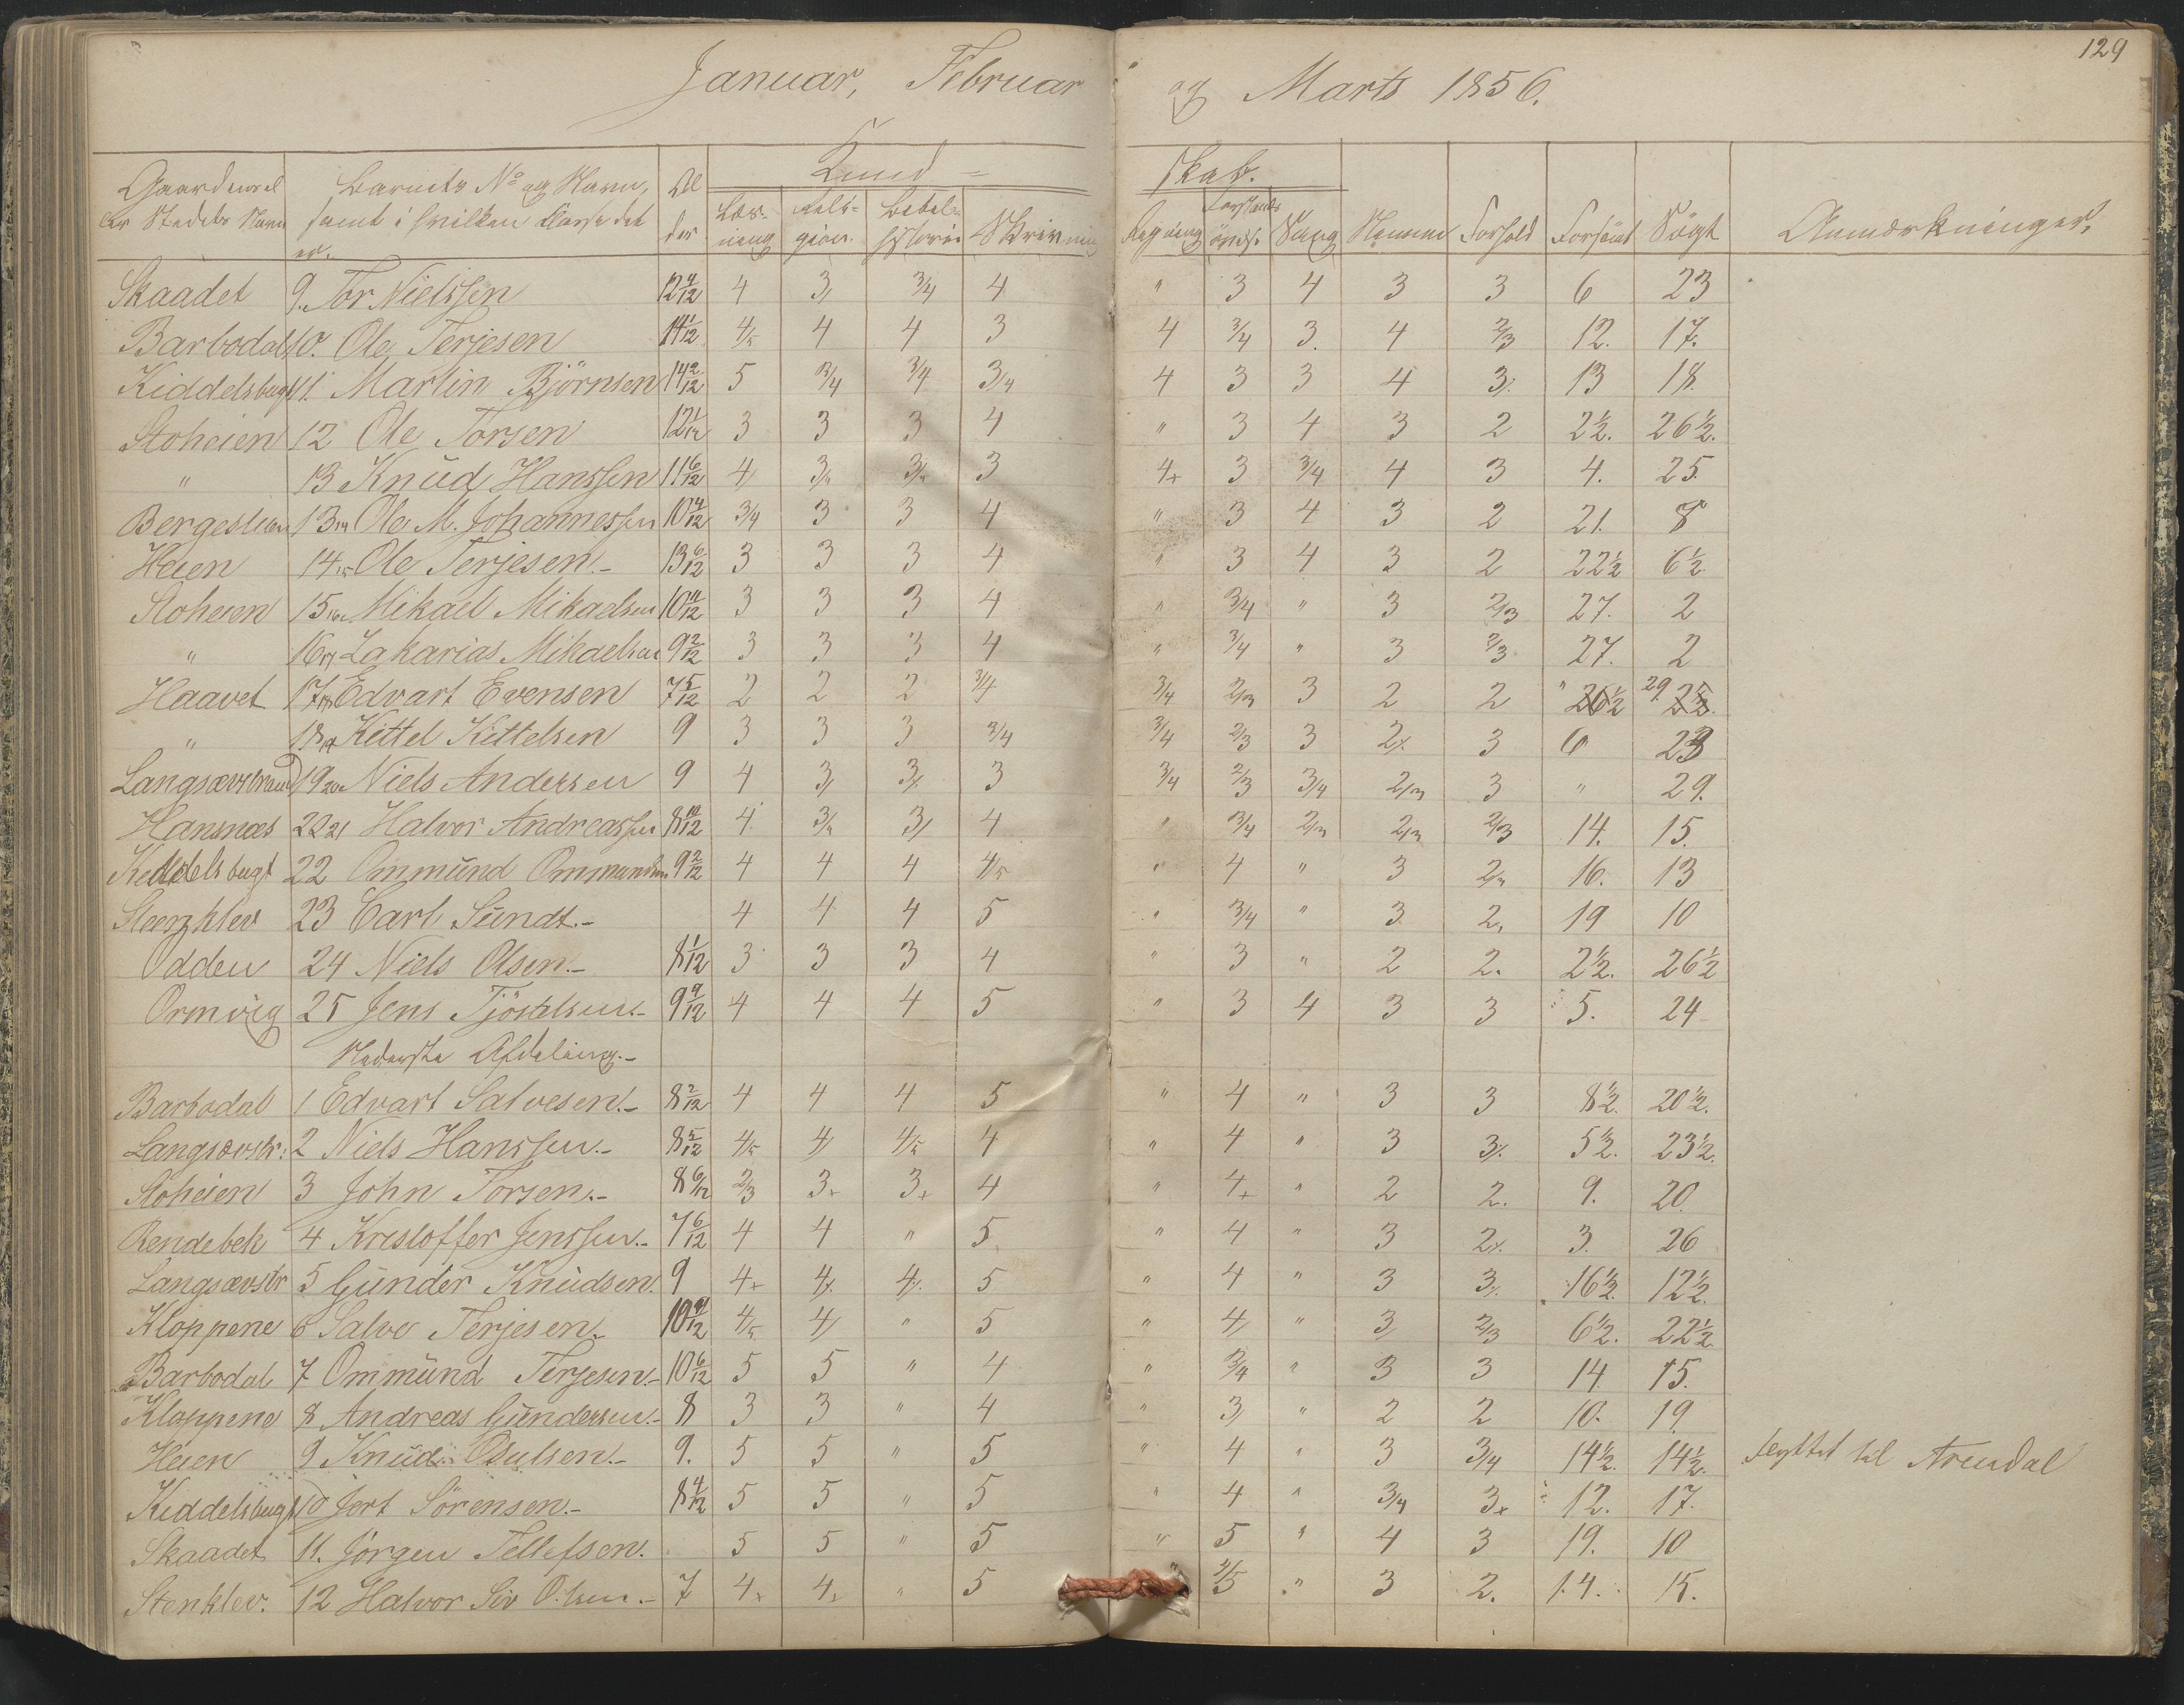 129
Januar, Februar og Marts 1856.
Kund= skab.
Gaardens el Barnets No og Navn, Al Læs- Reli= Bibel- Skrivning Regning Forstands Sang Nemme Forhold Forsömt Sögt Anmærkninger.
ler Stedets Navn samt i hvilken Klasse det der ning gion. historie övelse
er.
Skaadet 9. Tor Nielssen 12 4/12 4 3/ 3/4 4 " 3 4 3 3 6 23
Barbodal 10. Ole Terjesen 14 1/12 4/5 4 4 3 4 3/4 3. 4 2/3 12. 17.
Kiddelsbugt 11. Martin Björnsen 14 2/12 5 3/4 3/4 3/4 4 3 3 4 3% 13 18
Stoheien 12 Ole Torsen 12 1/12 3 3 3 4 " 3 4 3 2 2 1/2. 26 1/2.
" 13 Knud Hanssen 11 6/12 4/ 3/4 3/4 3 4+ 3 3/4 4 3 4. 25.
Bergeslien 13 14 Ole M. Johannessen 10 4/12 3/4 3 3 4 " 3 4 3 2 21. 8
Heien 14 15 Ole Terjesen.- 13 6/12 3 3 3 4 " 3 4 3 2 22 1/2 6 1/2
Stoheien 15 16 Mikael Mikaelsen 10 11/12 3 3 3 4 " 3/4 " 3 2/3 27. 2
" 16 17 Zakarias Mikaelsen 9 2/12 3 3 3 4 " 3/4 " 3 2/3 27. 2
Haavet 17 18 Edvart Evensen 7 5/12 2 2 2 3/4 3/4 2/3 3 2 2 " 26 1/2 29. 2 1/2.
" 18 19 Kittel Kittelsen 9 3 3 3 3/4 3/4 2/3 3 2% 3 6 23
Langsævstrand 19 20 Niels Andersen 9 4 3/ 3% 3 3/4 2/3 3/4 2/3 3 " 29.
Hansnæs 22 21 Halvor Andreassen 8 10/12 4 3/4 3/ 4 " 3/4 2/3 2/3 2/3 14. 15.
Kiddelsbugt 22 Ommund Ommundsen 9 2/12 4 4 4 4/5 " 4 " 3 2/3 16. 13
Steenklev 23 Carl Sundt.- 4 4 4 5 " 3/4 " 3 2, 19 10
Odden 24 Niels Olsen.- 8 1/12 3 3 3 4 " 3 " 2 2. 2 1/2. 26 1/2
Ormvig 25 Jens Tjöstelsen.- 9 9/12 4 4 4 5 " 3 4 3 3 5. 24
Nederste Afdeling.-
Barbodal 1 Edvart Salvesen.- 8 2/12 4 4 4 5 " 4 " 3 3 8 1/2. 20 1/2.
Langsævstr: 2 Niels Hanssen.- 8 5/12 4/5 4/ 4/5 4 " 4 " 3 3% 5 1/2. 23 1/2.
Stoheien 3 John Torsen.- 8 6/12 2/3 3+ 3+ 4 " 4+ " 2 2. 9. 20.
Rendebek 4 Kristoffer Jenssen.- 7 6/12 4 4 " 5 " 4 " 3 2% 3. 26
Langsævstr 5 Gunder Knudsen. 9 4+ 4% 4% 5 " 4 " 3 3% 16 1/2. 12 1/2.
Kloppene 6 Salve Terjesen.- 10 9/12 4/5 4/ " 5 " 4/ " 3/ 2/3 6 1/2. 22 1/2
Barbodal 7 Ommund Terjesen.- 10 6/12 5 5 " 4 " 3/4 " 3 3 14 15.
Kloppene 8 Andreas Gundersen.- 8 3 3 " 4 " 3/ " 2 2 10. 19.
Heien 9 Knud Osulsen.- 9. 5 5 " 5 " 4 " 3 3/4 14 1/2. 14 1/2. flyttet til Arendal
Kiddelsbugt 10 Jert Sörensen.- 8 4/12 5 5 " 5 " 4 " 3/4 3+ 12. 17.
Skaadet 11. Jörgen Tellefsen. 5 5 " 5 " 5 " 4 3 19. 10
Stenklev. 12 Halvor Siv Olsen.- 7 4+ 4+ " 5 " 4/5 " 3 2. 14. 15.